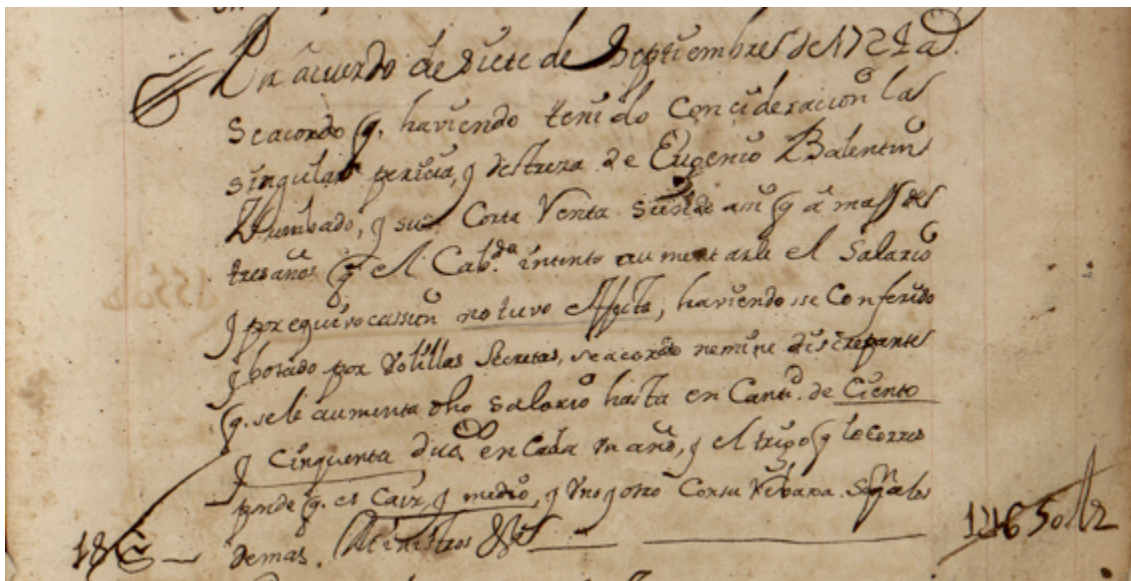 En acuerdo de Siete de Septiembre de 1721 a.
Seacordo q. haviendo tenido Concideracion las
singular pericia, y destreza de Eugenio Balentin
y su Corta Venta assi q a mas de
tres años q el Cab.do intento aumentarle el Salario
y por equivocassion no tuvo effecto, haviendosse Conferido
y botado por Volillas Secretas, seacordo nemine discrepante
q. sele aumenta dho Salario hasta en Cantd. de Ciento
y Cinquenta duc. en Cada un año, y el trigo q le corres
ponde q. es Caiz, y medio, y uno y otro Consu Segn. los
demas. Ministros &c